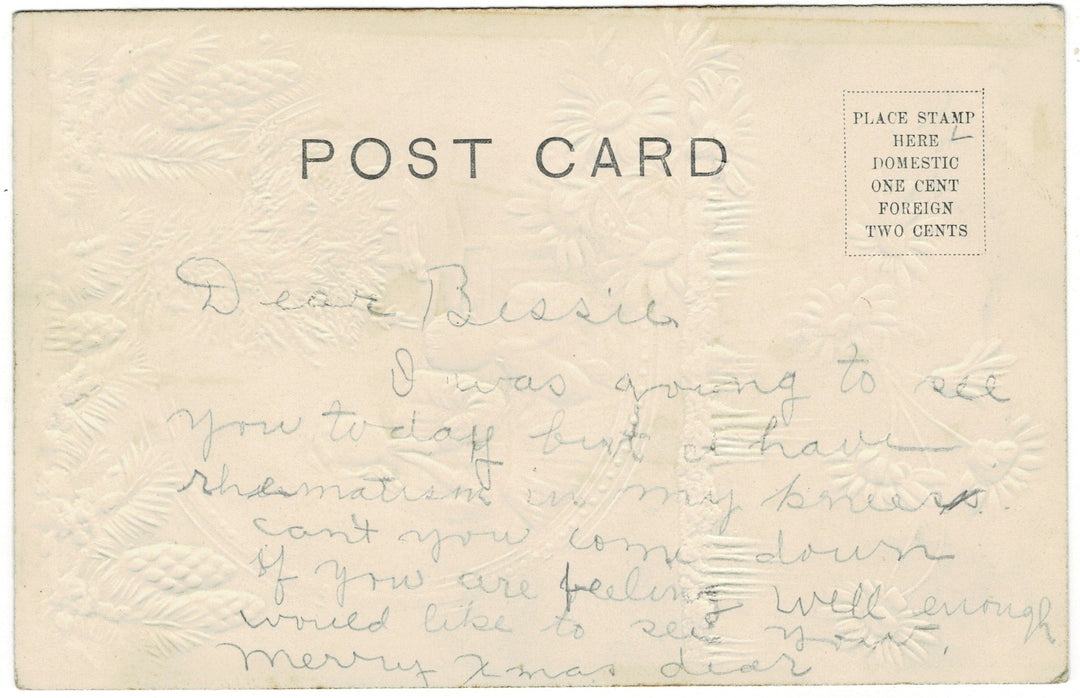 POST CARD
PLACE STAMP
HERE
DOMESTIC
ONE CENT
FOREIGN
TWO CENTS
Dear Bessie
I was going to see
you today but I have
rhematism in my knees.
can't you come down
If you are feeling well enough
would like to see you.
Merry Xmas dear